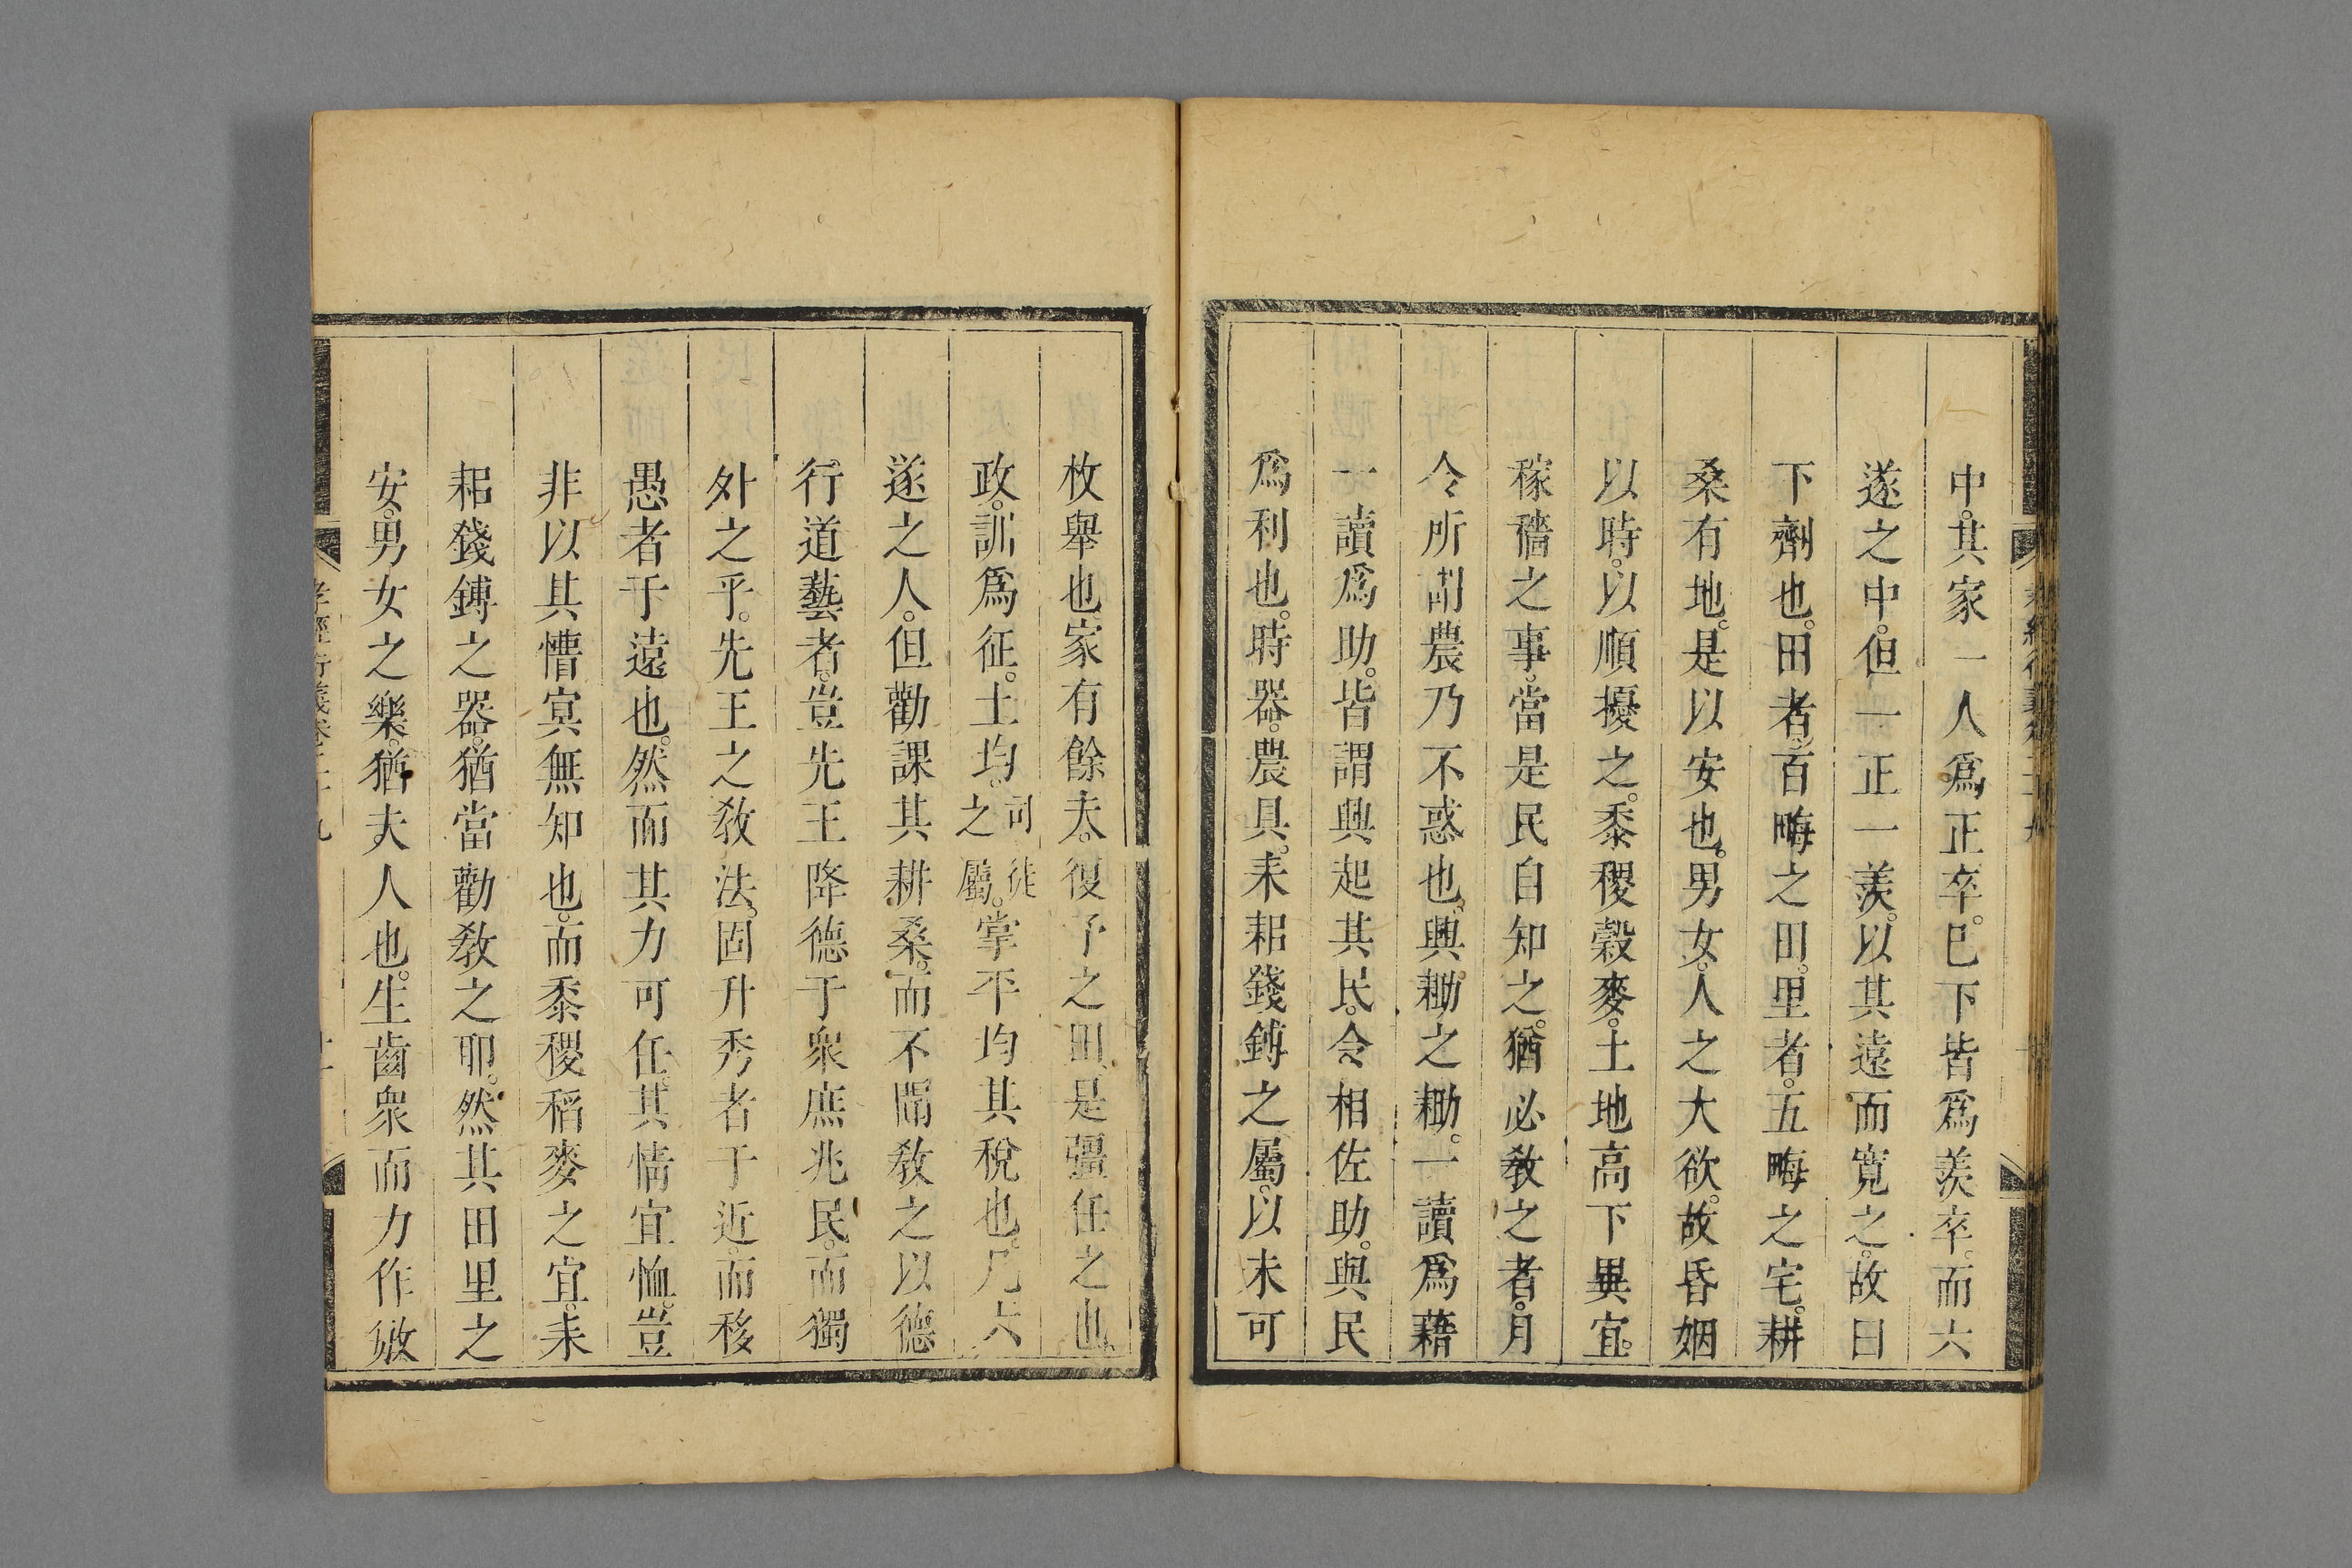 中。其家一人爲正卒。巳下皆爲羨卒。而六
遂之中。但一正一羨。以其遠而寛之。故曰
下劑也。田者。百畮之田。里者。五畮之宅。耕
桑有地。是以安也。男女。人之大欲。故昏姻
以時。以順擾之。黍稷穀麥。土地高下異宜。
稼穡之事。當是民自知之。猶必敎之者。月
令所謂農乃不惑也。興耡之耡。一讀爲藉
一讀爲助。皆謂興起其民。令相佐助。與民
爲利也。時器。農具。耒耜錢鎛之屬。以未可
枚舉也。家有餘夫。復予之田。是彊任之也
政。訓爲征。土均。司徒之屬。掌平均其稅也。凡六
遂之人。但勸課其耕桑。而不聞敎之以德
行道藝者。豈先王降德于衆庶兆民。而獨
外之乎。先王之敎法。固升秀者于近。而移
愚者于遠也。然而其力可任。其情宜恤。豈
非以其懵冥無知也。而黍稷稻麥之宜。耒
耜錢鎛之器。猶當勸敎之耶。然其田里之
安。男女之樂。猶夫人也。生齒衆而力作敏
孝經衍義卷二十九